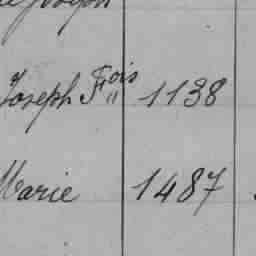 Joseph Fois 1138
Marie 1487